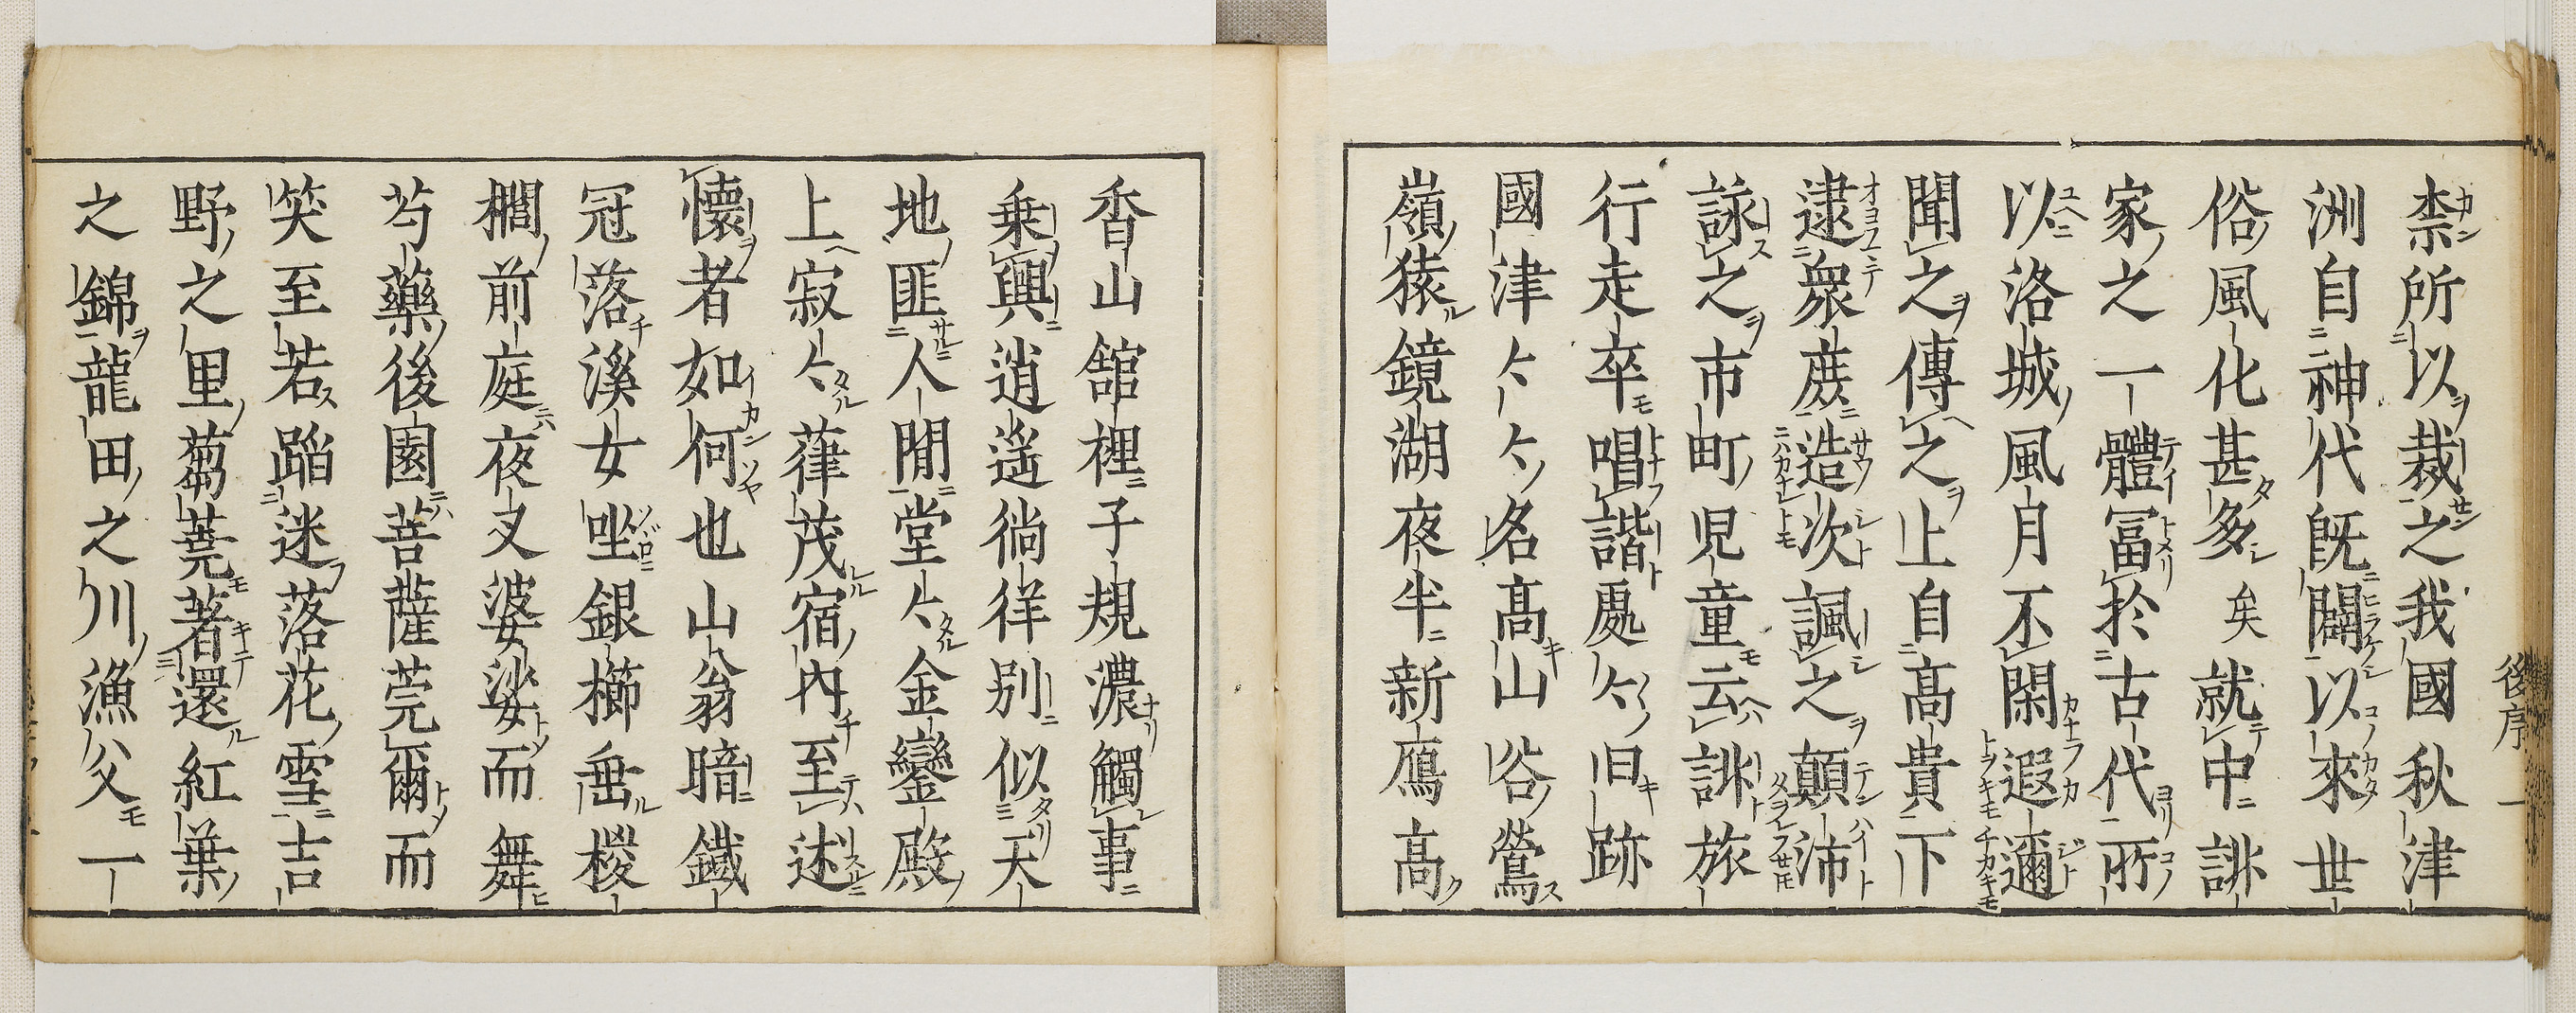 禁所以裁之我國秋津
洲自神代既闢以來世
俗風化甚多矣就中誹
家之一體冨於古代所
以洛城風月不閑遐邇
聞之傳之止自高貴下
逮衆庶造次諷之顛沛
詠之市町児童云誹旅
行走卒唱諧處〻旧跡
國津〻〻名高山谷鶯
嶺猿鏡湖夜半新鴈高
後序 一
香山舘裡子規濃觸事
乗興逍遥徜徉別似天
地匪人間堂〻金鑾殿
上寂〻葎茂宿内至述
懐者如何也山翁暗鐵
冠落溪女咄銀櫛垂椶
櫚前庭夜叉婆娑而舞
芍藥後園菩薩莞爾而
笑至若蹈迷落花雪吉
野之里蒭蕘著還紅葉
之錦龍田之川漁父一